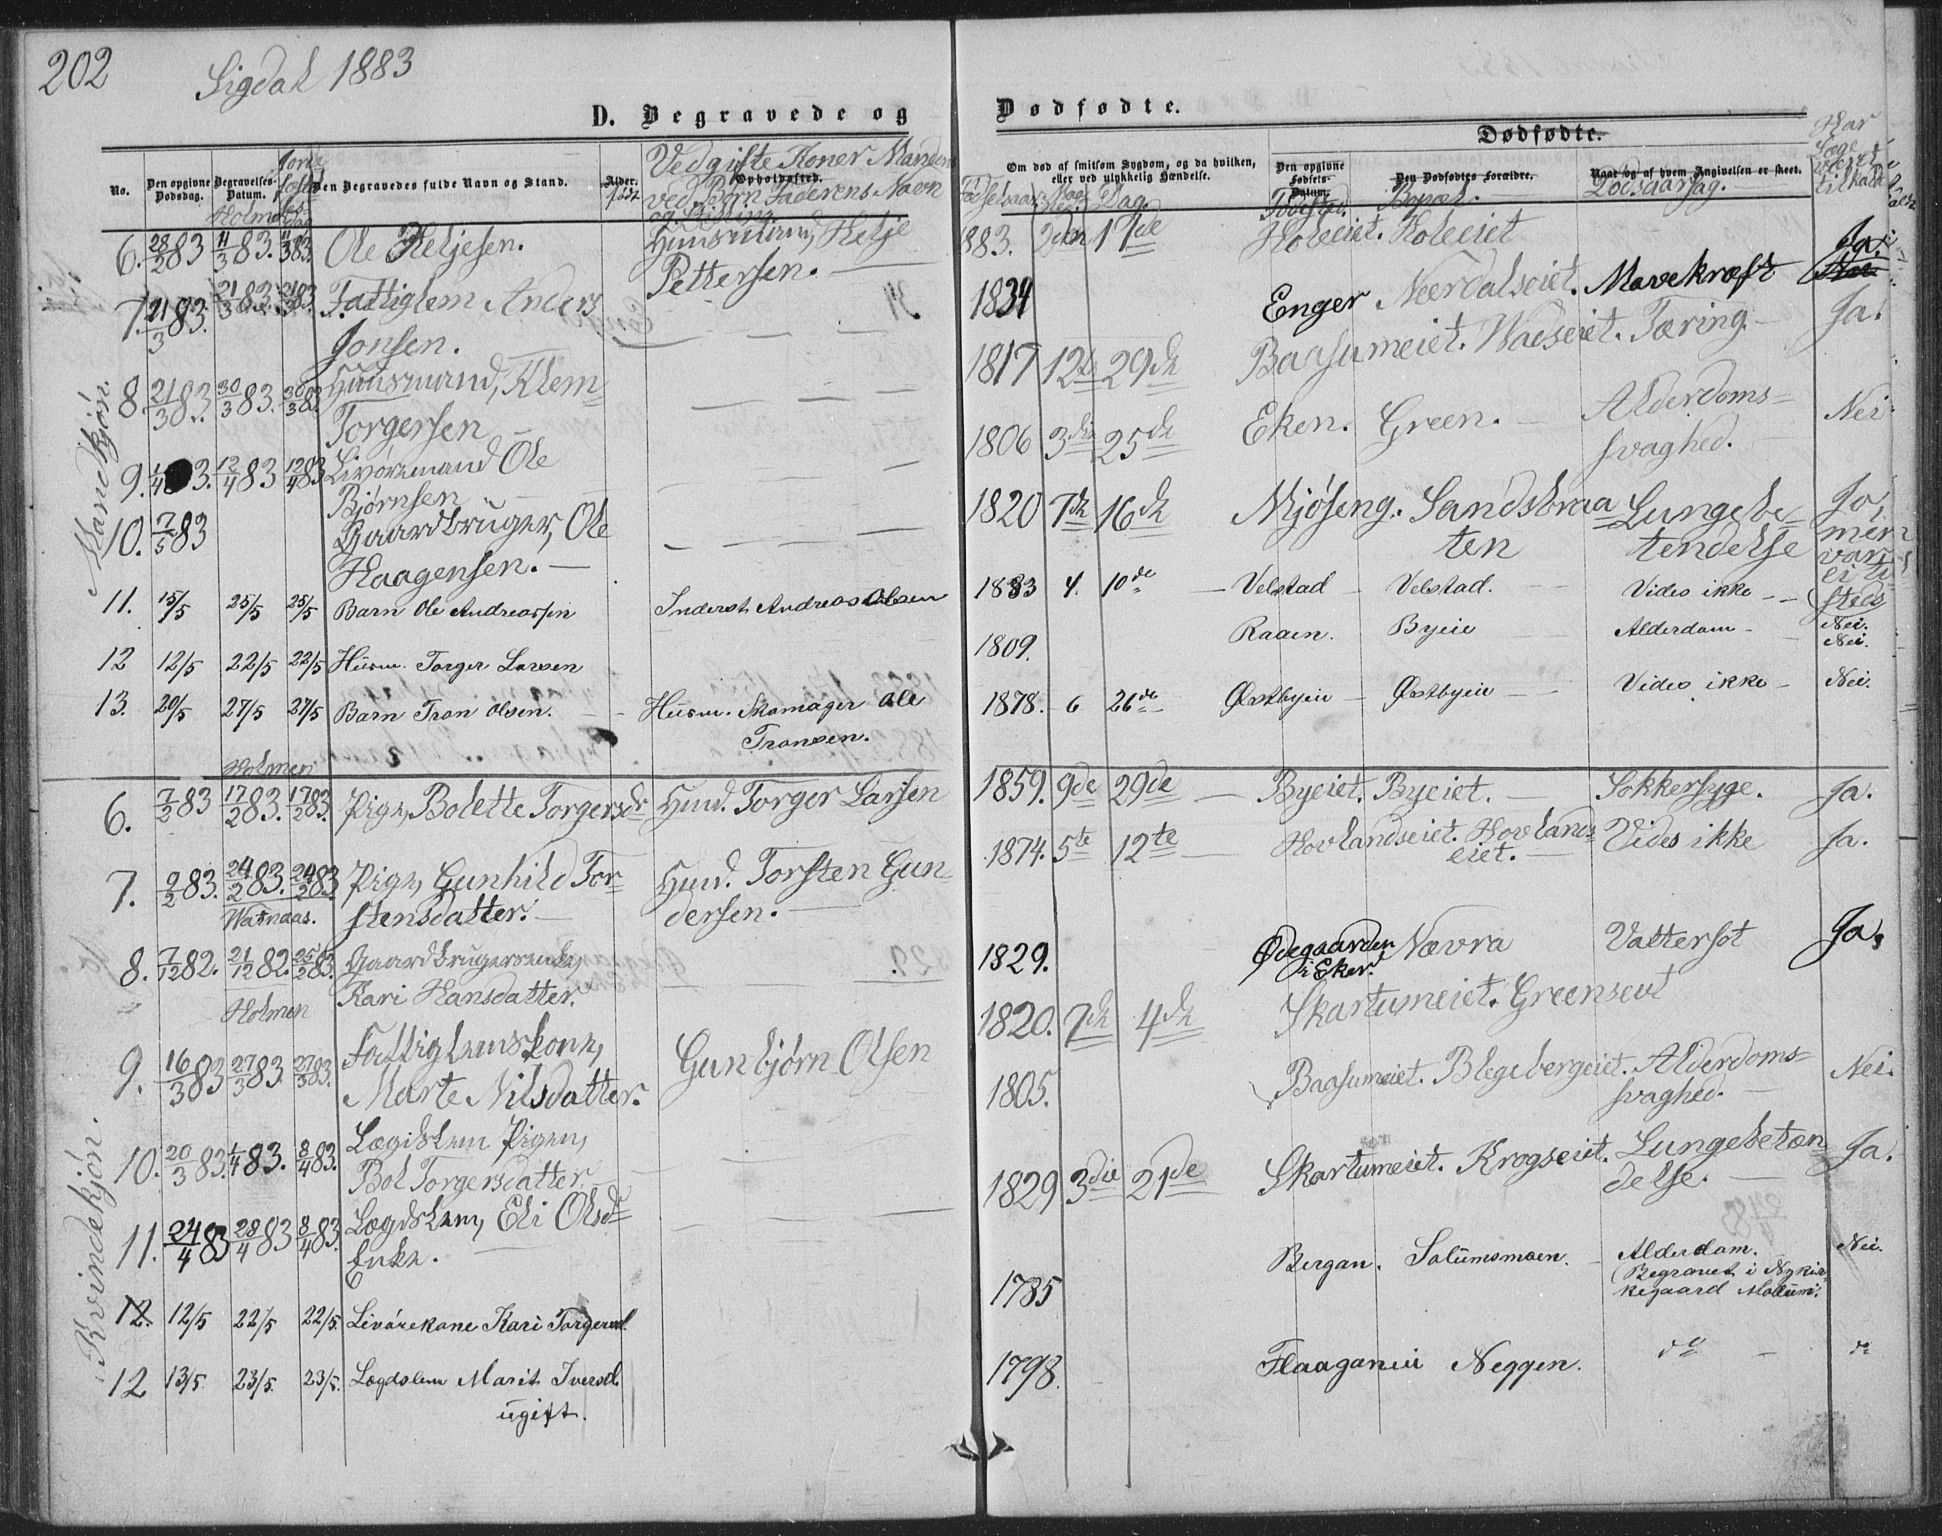 202 Sigdal 1883
D. Begravede og Dødfødte.
Dødfødte.
No.
Den opgivne Dødsdag.
Begravelses-Datum.
Den Begravedes fulde Navn og Stand.
Alder. født
Opholdssted.
Vedgifte Koner Mandens
ved Børn Faderens Navn
og Stilling
Om død af smitsom Sygdom, og da hvilken,
eller ved ulykkelig Hændelse.
Fødselsaar Dag
Den opgivne Fødsels-Datum.
Fødested.
Den Dødfødtes Forældre.
Bopæl.
Naar og af hvem Angivelsen er skeet.
Dødsaarsag.
Har Læge været tilkaldt
Mandkjøn.
Holmen
6. 28/2 83 11/3 83. 11/3 83. Ole Heljesen. Huusmand, Helje
Pettersen. 883. 2den 17de Holeeiet. Holeeiet Ja.
7. 21/3 83. 21/3 83. 21/3 83 Fattiglem Anders
Jonsen. 1834 Enger Neerdalseiet. Mavekræft Nei
8. 21/3 83. 30/3 83. 30/3 83. Huusmand, Klem
Torgersen 1817 12te 29de Baasumeiet. Tæring. Ja.
9. 1/4 83. 12/4 83 12/4 83 Livøremand Ole
Bjørnsen 1806 3die 25de Eken. Green. Alderdoms-
svaghed. Nei
10. 7/5 83 Gaardbruger, Ole
Haagensen. 1820 7de 16de Mjøseng. Sandsbraa
ten Lungebe-
tendelse Ja,
men
var
ei til
sted
11. 15/5 25/5 25/5 Barn Ole Andreassen Inderst Andreas Olsen 1883 4. 10de Velstad Velstad. Vides ikke Nei.
12 12/5 22/5 22/5 Husm. Torger Larsen 1809. Raaen. Byeie Alderdom Nei.
13. 20/5 27/5 27/5 Barn Tron Olsen. Husm. Skomager Ole
Tronsen. 1878. 6 26de Østbyeie Østbyeie Vides ikke Nei.
Kvindekjøn.
Holmen
6. 7/2 83 17/2 83. 17/2 83. Pige, Bolette Torgersdr Husmd. Torger Larsen 1859. 9de 29de Byeiet. Byeiet. Sokkersyge. Ja.
7. 9/2 83. 24/2 83. 24/2 83 Pige, Gunhild Tor-
stensdatter. Husmd. Torsten Gun-
dersen. 1874. 5te 12te Hovlandseiet. Hovlands
eiet. Vides ikke Ja.
Vatnaas.
8. 7/12 82. 21/12 82. 25/2 83. Gaardbrugerenke,
Kari Hansdatter. 1829. Ødegaarden
i Eker. Nævra Vattersot Ja.
Holmen
9. 16/3 83 27/3 83. 27/3 83. Fattiglemskone,
Marte Nilsdatter. Gunbjørn Olsen 1820. 7de 4de Skartumeiet. Greenseiet
10. 20/3 83. 1/4 83. 8/4 83. Lægdslem Pigen,
Bol Torgersdatter 1805. Baasumeiet. Blegebergeiet. Alderdoms-
svaghed. Nei.
11. 24/4 83 28/4 83 8/4 83. Lægdslem, Eli Olsdr
Enke. 1829 3die 21de Skartumeiet. Krogseiet. Lungebetæn
delse. Ja.
12. 12/5 22/5 22/5. Livørekone Kari Torgersd. 1785 Bergan. Solumsmoen. Alderdom.
(Begravet i Nykir-
kegaard Modum. Nei.
12 13/5. 23/5. 23/5. Lægdslem Marit Iversd.
ugift. 1798. Haaganeie Neggen. do do